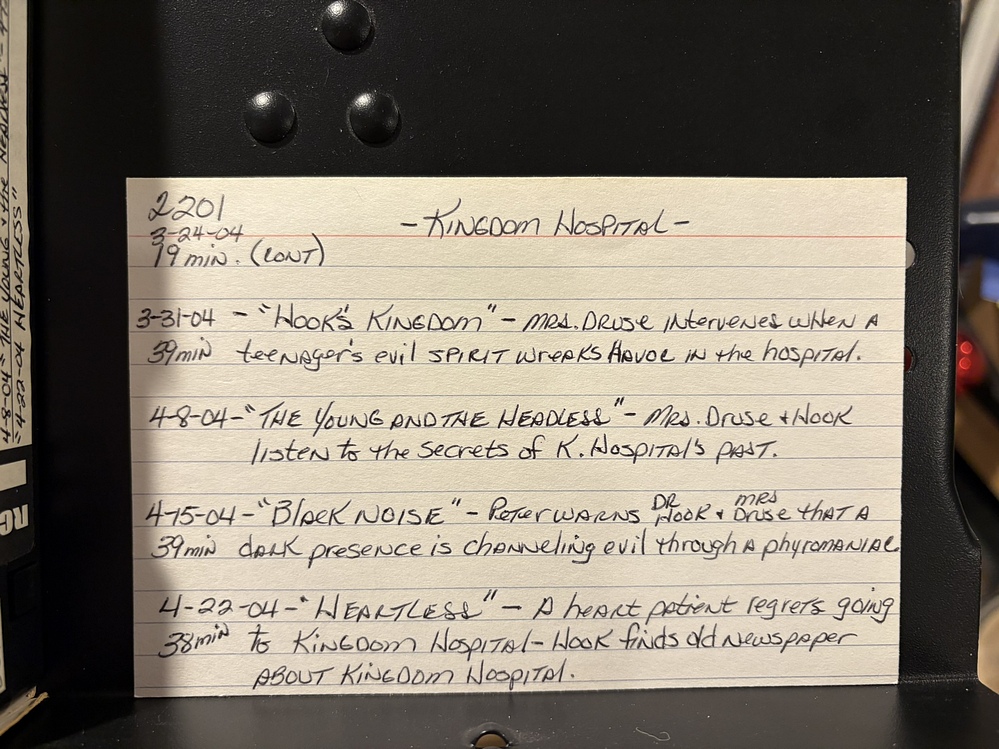 2201
3-24-04
19 min. (CONT)
- KINGDOM HOSPITAL -
3-31-04 - "HOOK'S KINGDOM" - MRS. DRUSE INTERVENES WHEN A
39min teenager's evil SPIRIT WREAKS HAVOC IN the hospital.
4-8-04 - "THE YOUNG AND THE HEADLESS" - MRS. Druse & HOOK
listen to the secrets of K. HOSPITAL'S PAST.
4-15-04 - "BLACK NOISE" - Peter WARNS DR HOOK & MRS Druse that A
39min dark presence is channeling evil through A phyromaniac
4-22-04 - "HEARTLESS" - A heart patient regrets going
38min to KINGDOM HOSPITAL - HOOK finds old NEWSPAPER
ABOUT KINGDOM HOSPITAL.
4-8-04 "THE YOUNG & the HEADLESS"
"4-22-04 HEARTLESS"
RC